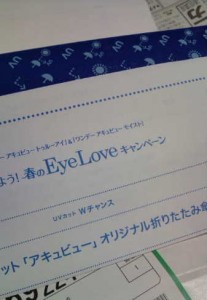 アキュビュー トゥルーアイ」&「ワンデー アキュビュー モイスト」
よう! 春のEyeLoveキャンペーン
UVカット Wチャンス
ット「アキュビュー」オリジナル折りたたみ傘